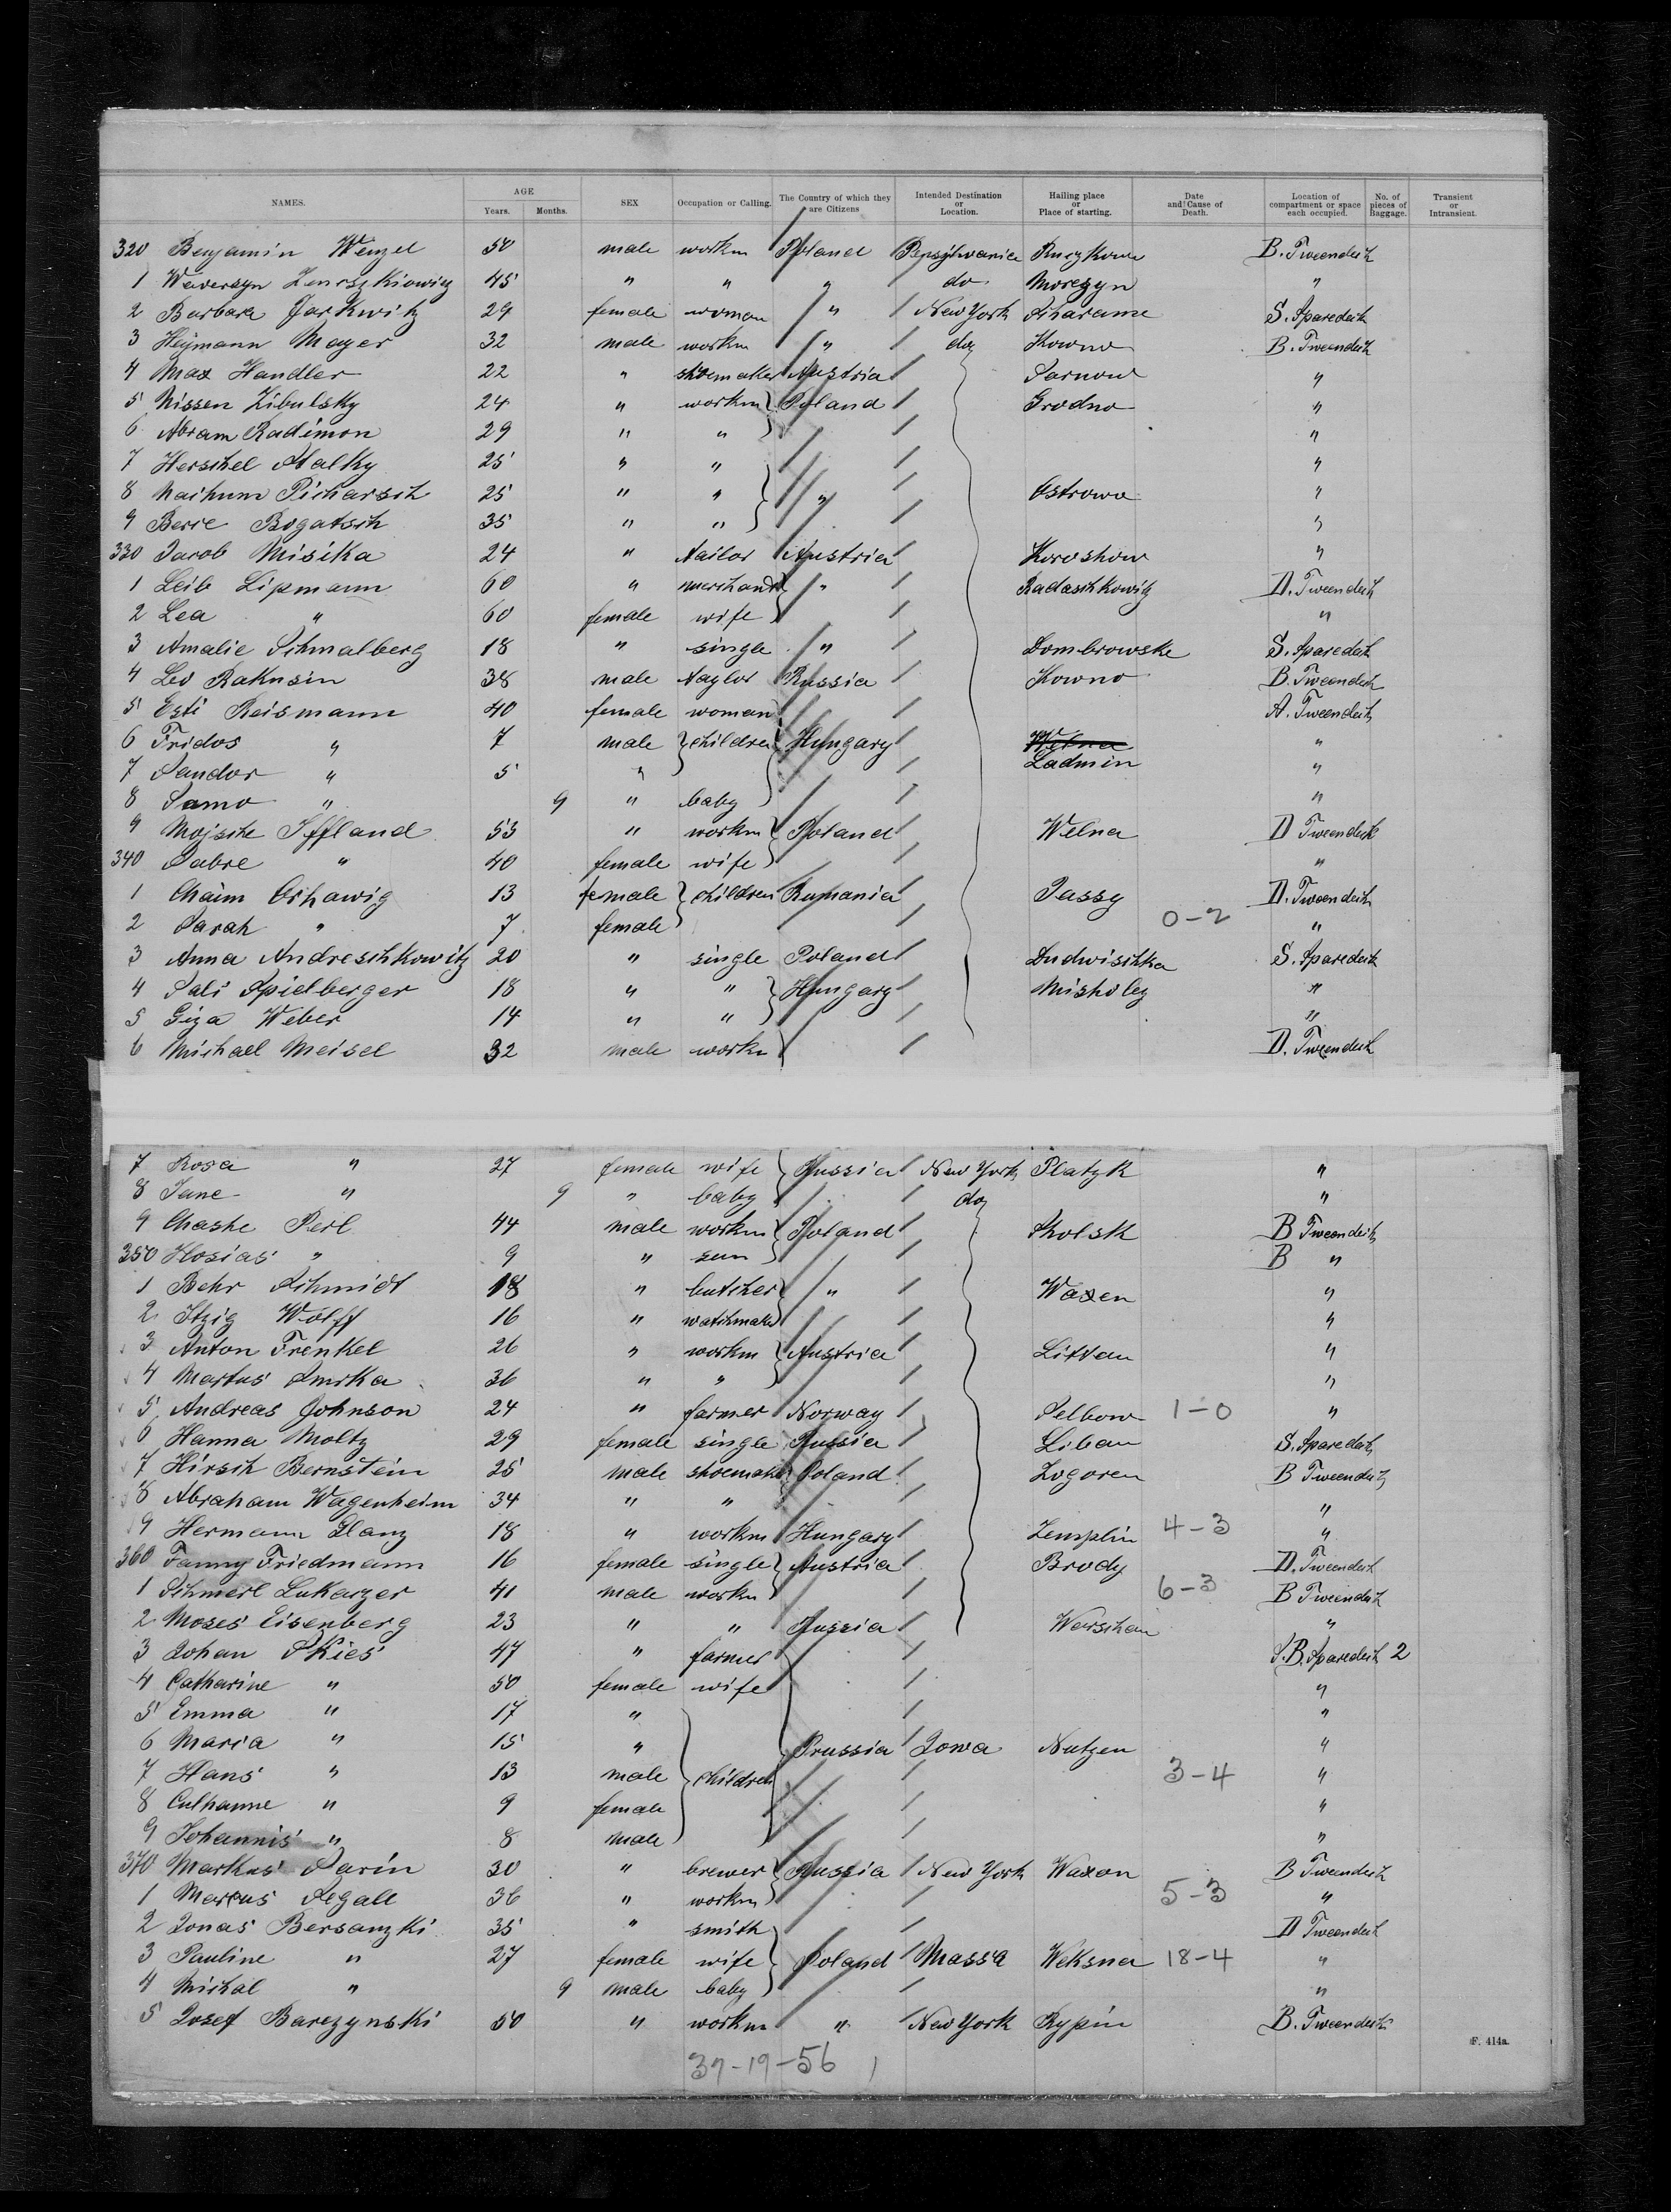 NAMES. AGE Years. Months. SEX Occupation or Calling. The Country of which they are Citizens Intended Destination or Location. Hailing place or Place of starting. Date and Cause of Death. Location of compartment or space each occupied. No. of pieces of Baggage. Transient or Intransient.
320 Benjamin Wenzel 50 male workm Poland Pensylvania B. Tweendeck
1 45 " " " do. "
2 Barbara Jarkwitz 29 female woman " New York S. Sparedeck
3 Heymann Mayer 32 male workm " do Kowno B. Tweendeck
4 Max Handler 22 " shoemaker Austria Tarnow "
5 Nissen Zibulsky 24 " workm Poland Grodno "
6 Abram Radimon 29 " " "
7 Herschel Stalky 25 " " "
8 Naihum Picharsch 25 " " " Ostrowo "
9 Berre Bogatsch 35 " " "
330 Jacob Misika 24 " tailor Austria Koroshow "
1 Leib Lipmann 60 " merchand " Radaschkowitz D. Tweendeck
2 Lea " 60 female wife "
3 Amalie Schmalberg 18 " single " Dombrowske S. Sparedeck
4 Leo Rakusin 38 male taylor Russia Kowno B. Tweendeck
5 Esti Reismann 40 female woman A. Tweendeck
6 Fridos " 7 male children Hungary Welna "
7 Sandor " 5 " Ladmin "
8 Samo " 9 " baby "
9 Mojsche Iffland 53 " workm Poland Welna D Tweendeck
340 Sabre " 40 female wife "
1 Chaim Oshawig 13 female children Rumania Jassy D. Tweendeck
2 Sarah " 7 female 0-2 "
3 Anna Andreschkowitz 20 " single Poland Ludwischka S. Sparedeck
4 Sali Spielberger 18 " " Hungary Mishkolcz "
5 Giza Weber 14 " " "
6 Michael Meisel 32 male workm D. Tweendeck
7 Rosa " 27 female wife Russia New York Platzk "
8 Jane " 9 " baby do "
9 Chashe Perl 44 male workm Poland Skolsk B Tweendeck
350 Hosias " 9 " sun B "
1 Behr Schmidt 18 " butcher " Waxen "
2 Itzig Wolff 16 " watchmaker "
3 Anton Frenkel 26 " workm Austria Littau "
4 Markus Smrka 36 " " "
5 Andreas Johnson 24 " farmer Norway Selbow 1-0 "
6 Hanna Moltz 29 female single Russia Libau S. Sparedeck
7 Hirsch Bernstein 25 male shoemaker Poland Zogoren B Tweendeck
8 Abraham Wagenheim 34 " " "
9 Hermann Glanz 18 " workm Hungary Zemplin 4-3 "
360 Fanny Friedmann 16 female single Austria Brody D. Tweendeck
1 Schmerl Lukaczer 41 male workm 6-3 B Tweendeck
2 Moses Eisenberg 23 " " Russia Warschau "
3 Johan Skies 47 " farmer S.B. Sparedeck 2
4 Catharine " 50 female wife "
5 Emma " 17 " "
6 Maria " 15 " Prussia Iowa Nutzen "
7 Hans " 13 male children 3-4 "
8 Cathanne " 9 female "
9 Johannis " 8 male "
370 Markus Sarin 30 " brewer Russia New York Waxon B Tweendeck
1 Marcus Segall 36 " workm 5-3 "
2 Jonas Bersanzki 35 " smith D Tweendeck
3 Pauline " 27 female wife Poland Massa Weksna 18-4 "
4 Michal " 9 male baby "
5 Josef Barczynski 50 " workm " New York Rypin B. Tweendeck
F. 414a.
37-19-56